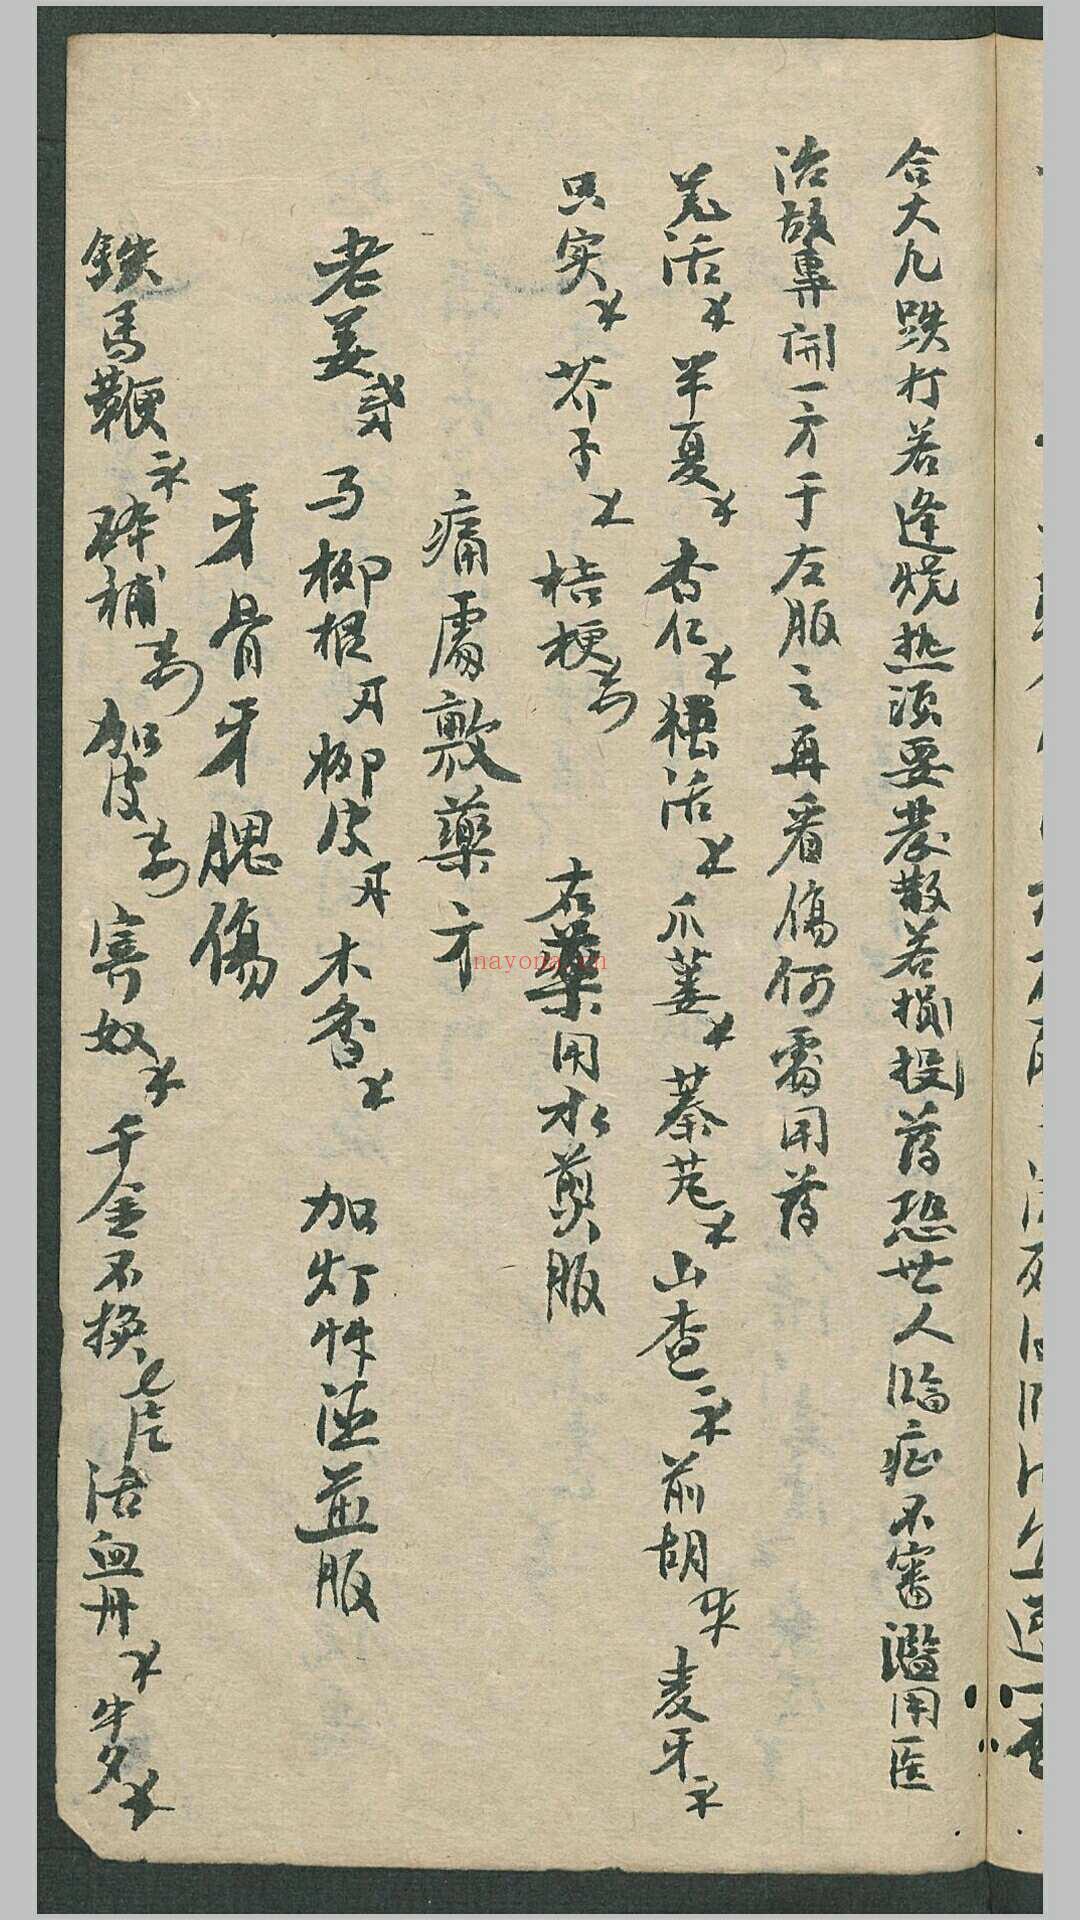 合大凡跌打若逢烧热须要发散若损投药恐世人臨症不審濫用医
治故專開一方于左服之再看傷何處用药
羌活 半夏 杏仁 独活 爪蒌 蓁艽 山查 前胡 麦牙
只实 芥子 桔梗 右藥用水煎服
痛處敷藥方
老姜 马柳根 柳皮 木香 加灯艸 並服
牙骨牙腮傷
鉄馬鞭 碎補 加皮 寄奴 千金不換 七片 活血丹 牛夕
nayona.cn